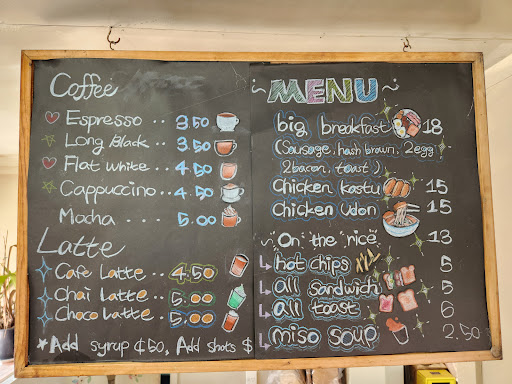 Coffee
Espresso .. 3.50
Long Black .. 3.50
Flat white .. 4.50
Cappuccino .. 4.50
Mocha .... 5.00
Latte
Cafe Latte .. 4.50
Chai Latte .. 5.00
Choco Latte .. 5.00
Add syrup ¢50, Add shots $
MENU
big breakfast 18
(Sausage, hash brown, 2egg,
2bacon, toast)
Chicken kastu 15
Chicken Udon 15
"On the rice" 13
hot chips 5
all sandwich 5
all toast 6
miso soup 2.50